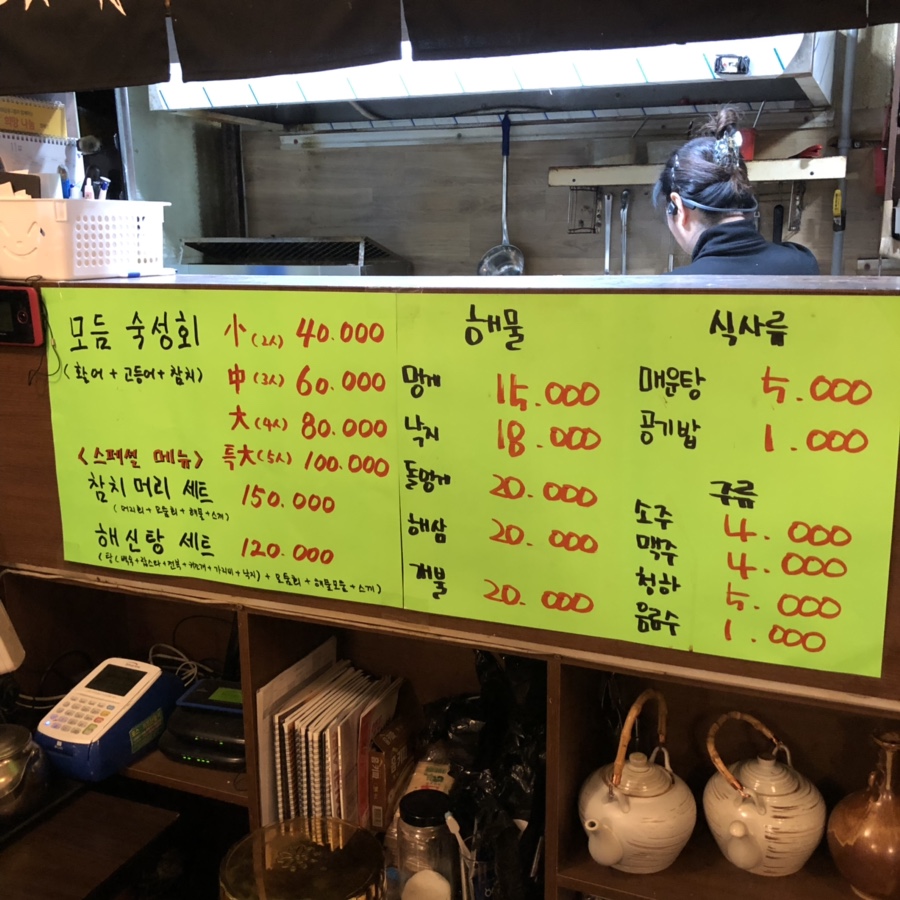 모듬 숙성회 小 (2人) 40.000
(활어 + 고등어 + 참치) 中 (3人) 60.000
大 (4人) 80.000
<스페셜 메뉴> 특大 (5人) 100.000
참치 머리 세트 150.000
(머리회 + 모듬회 + 해물 + 스끼)
해신탕 세트 120.000
(탕 + 모듬회 + 해물모듬 + 스끼)
해물
멍게 15.000
낙지 18.000
돌멍게 20.000
해삼 20.000
개불 20.000
식사류
매운탕 5.000
공기밥 1.000
주류
소주 4.000
맥주 4.000
청하 5.000
음료수 1.000